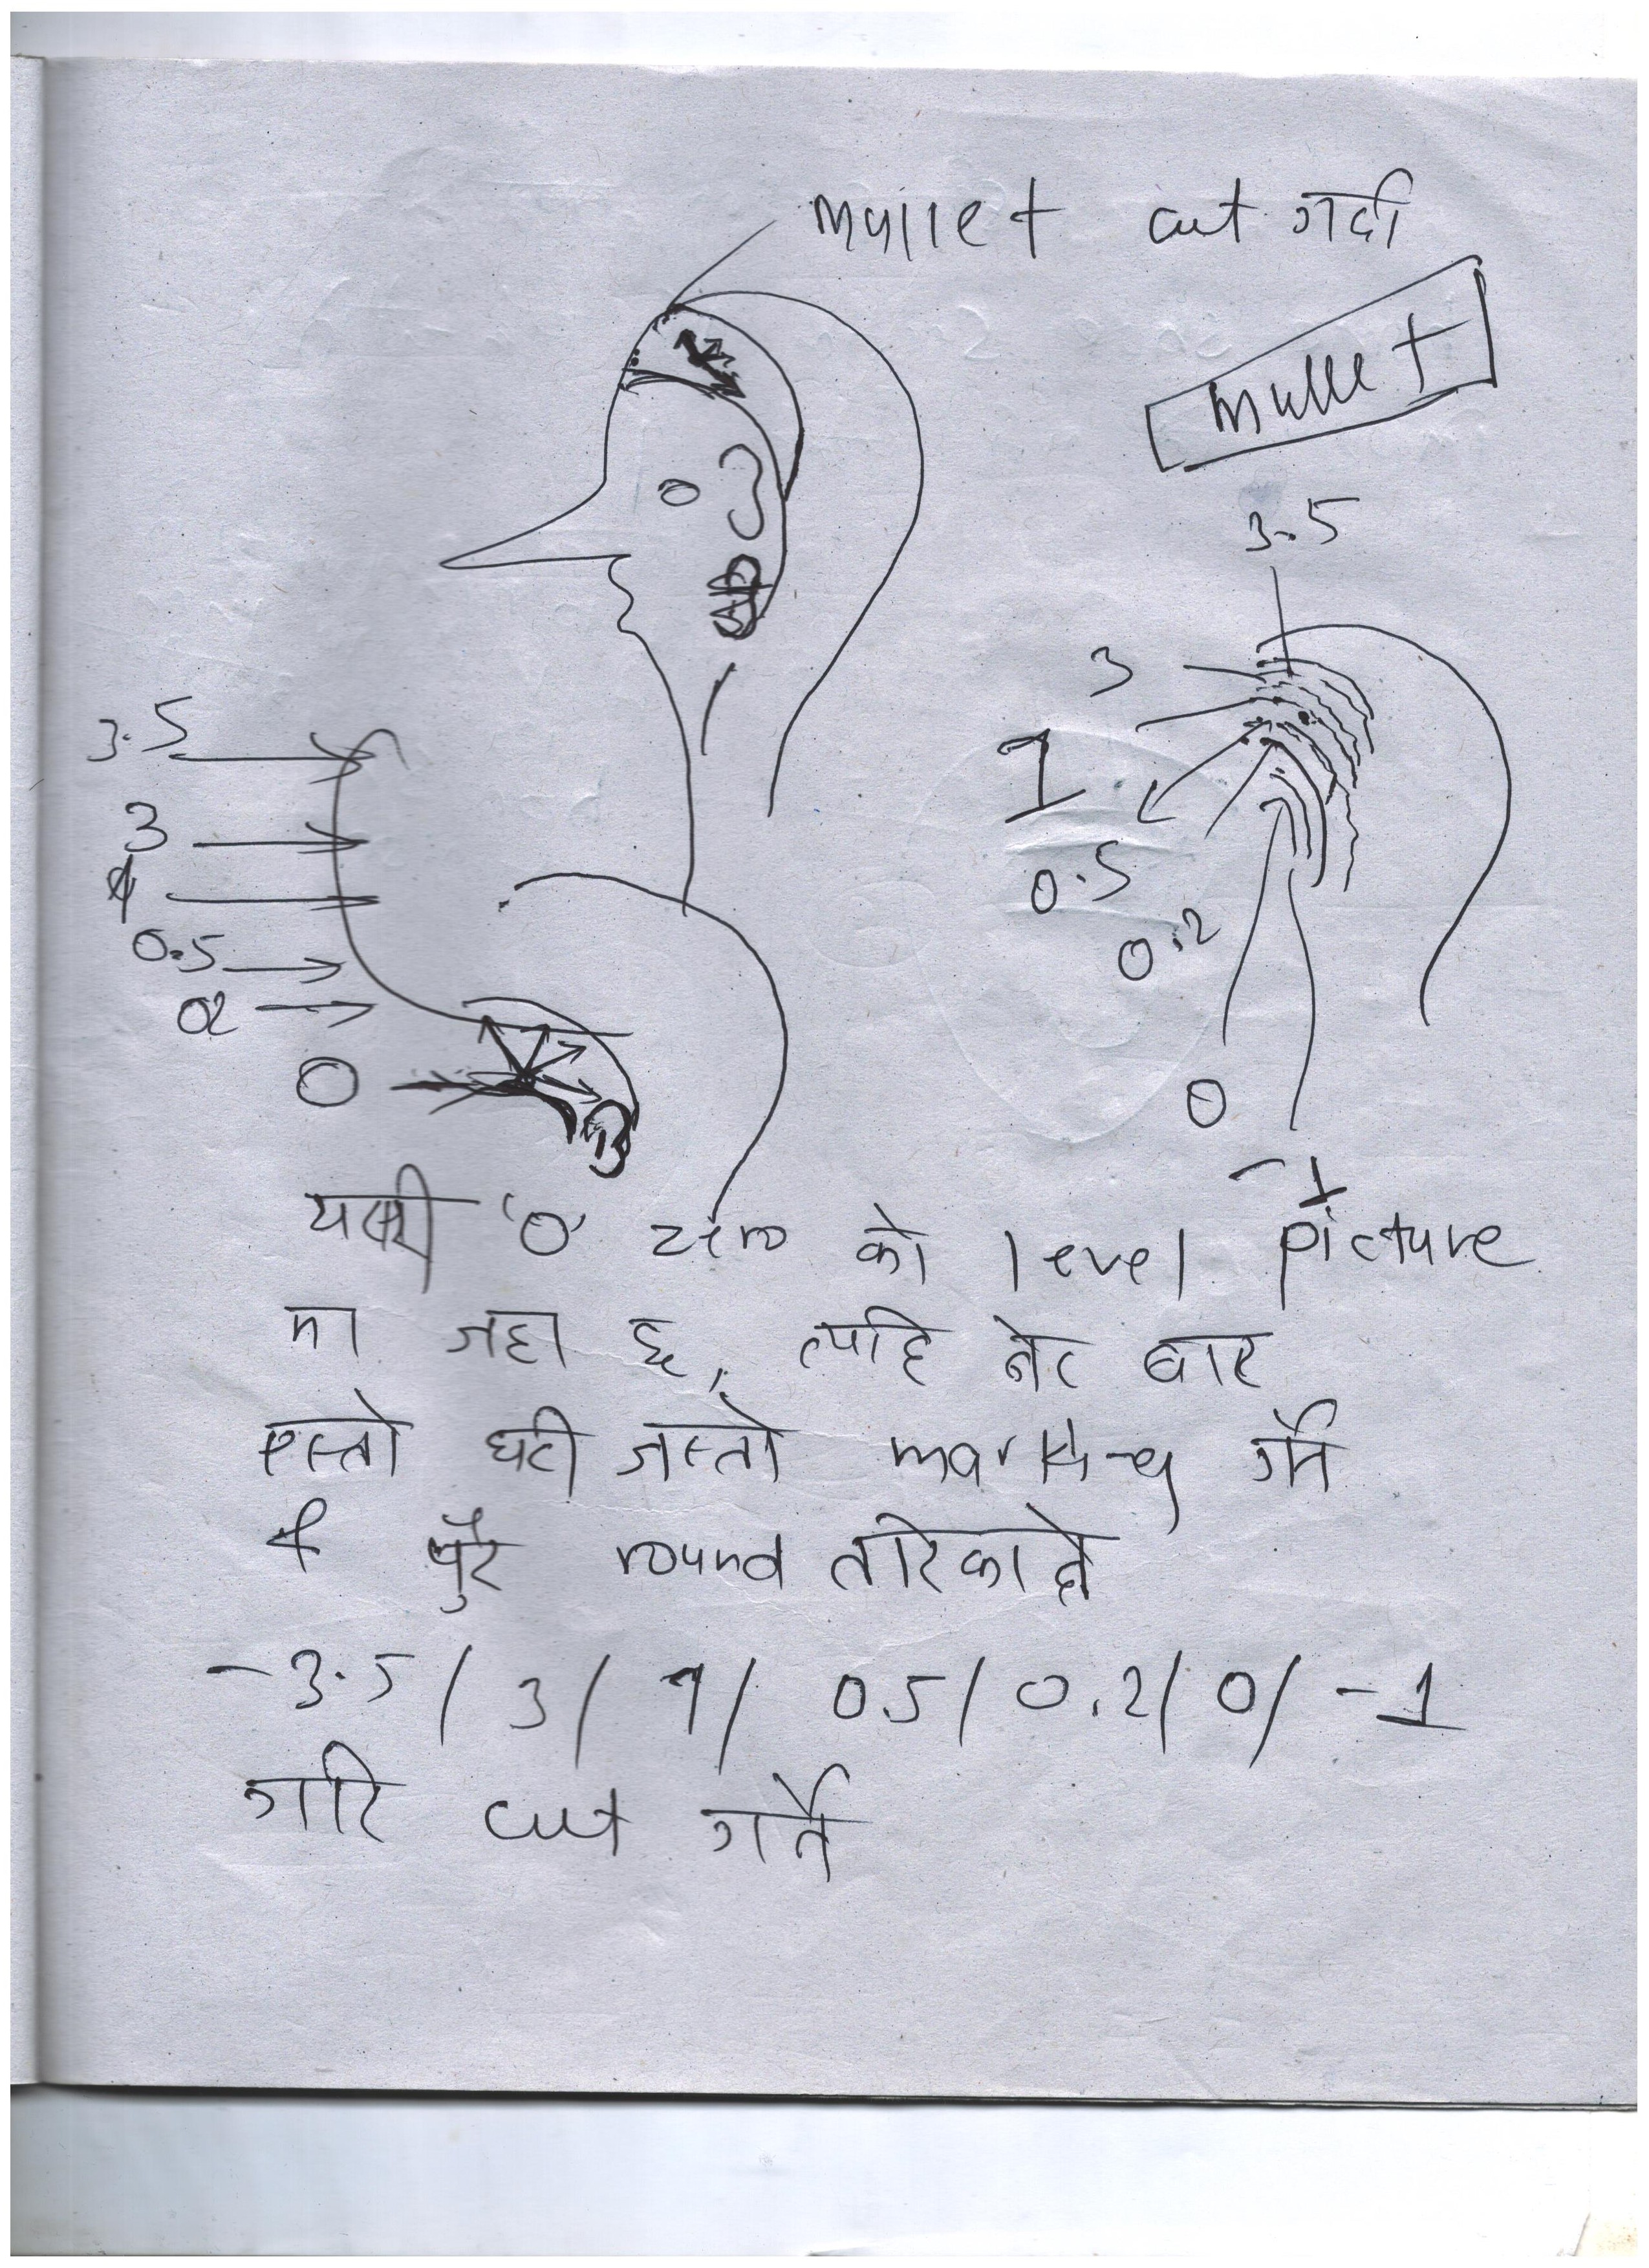 mullet cut गर्दा
mullet
3.5
3
1
0.5
0.2
0
-1
3.5
3
1
0.5
02
0
यसरी '0' zero को level picture
मा जहा छ, त्यहि नेर बाट
एस्तो घटी जस्तो marking गर्ने
र पुरै round तरिकाले
- 3.5 / 3 / १ / 0.5 / 0.2 / 0 / -1
गरि cut गर्ने